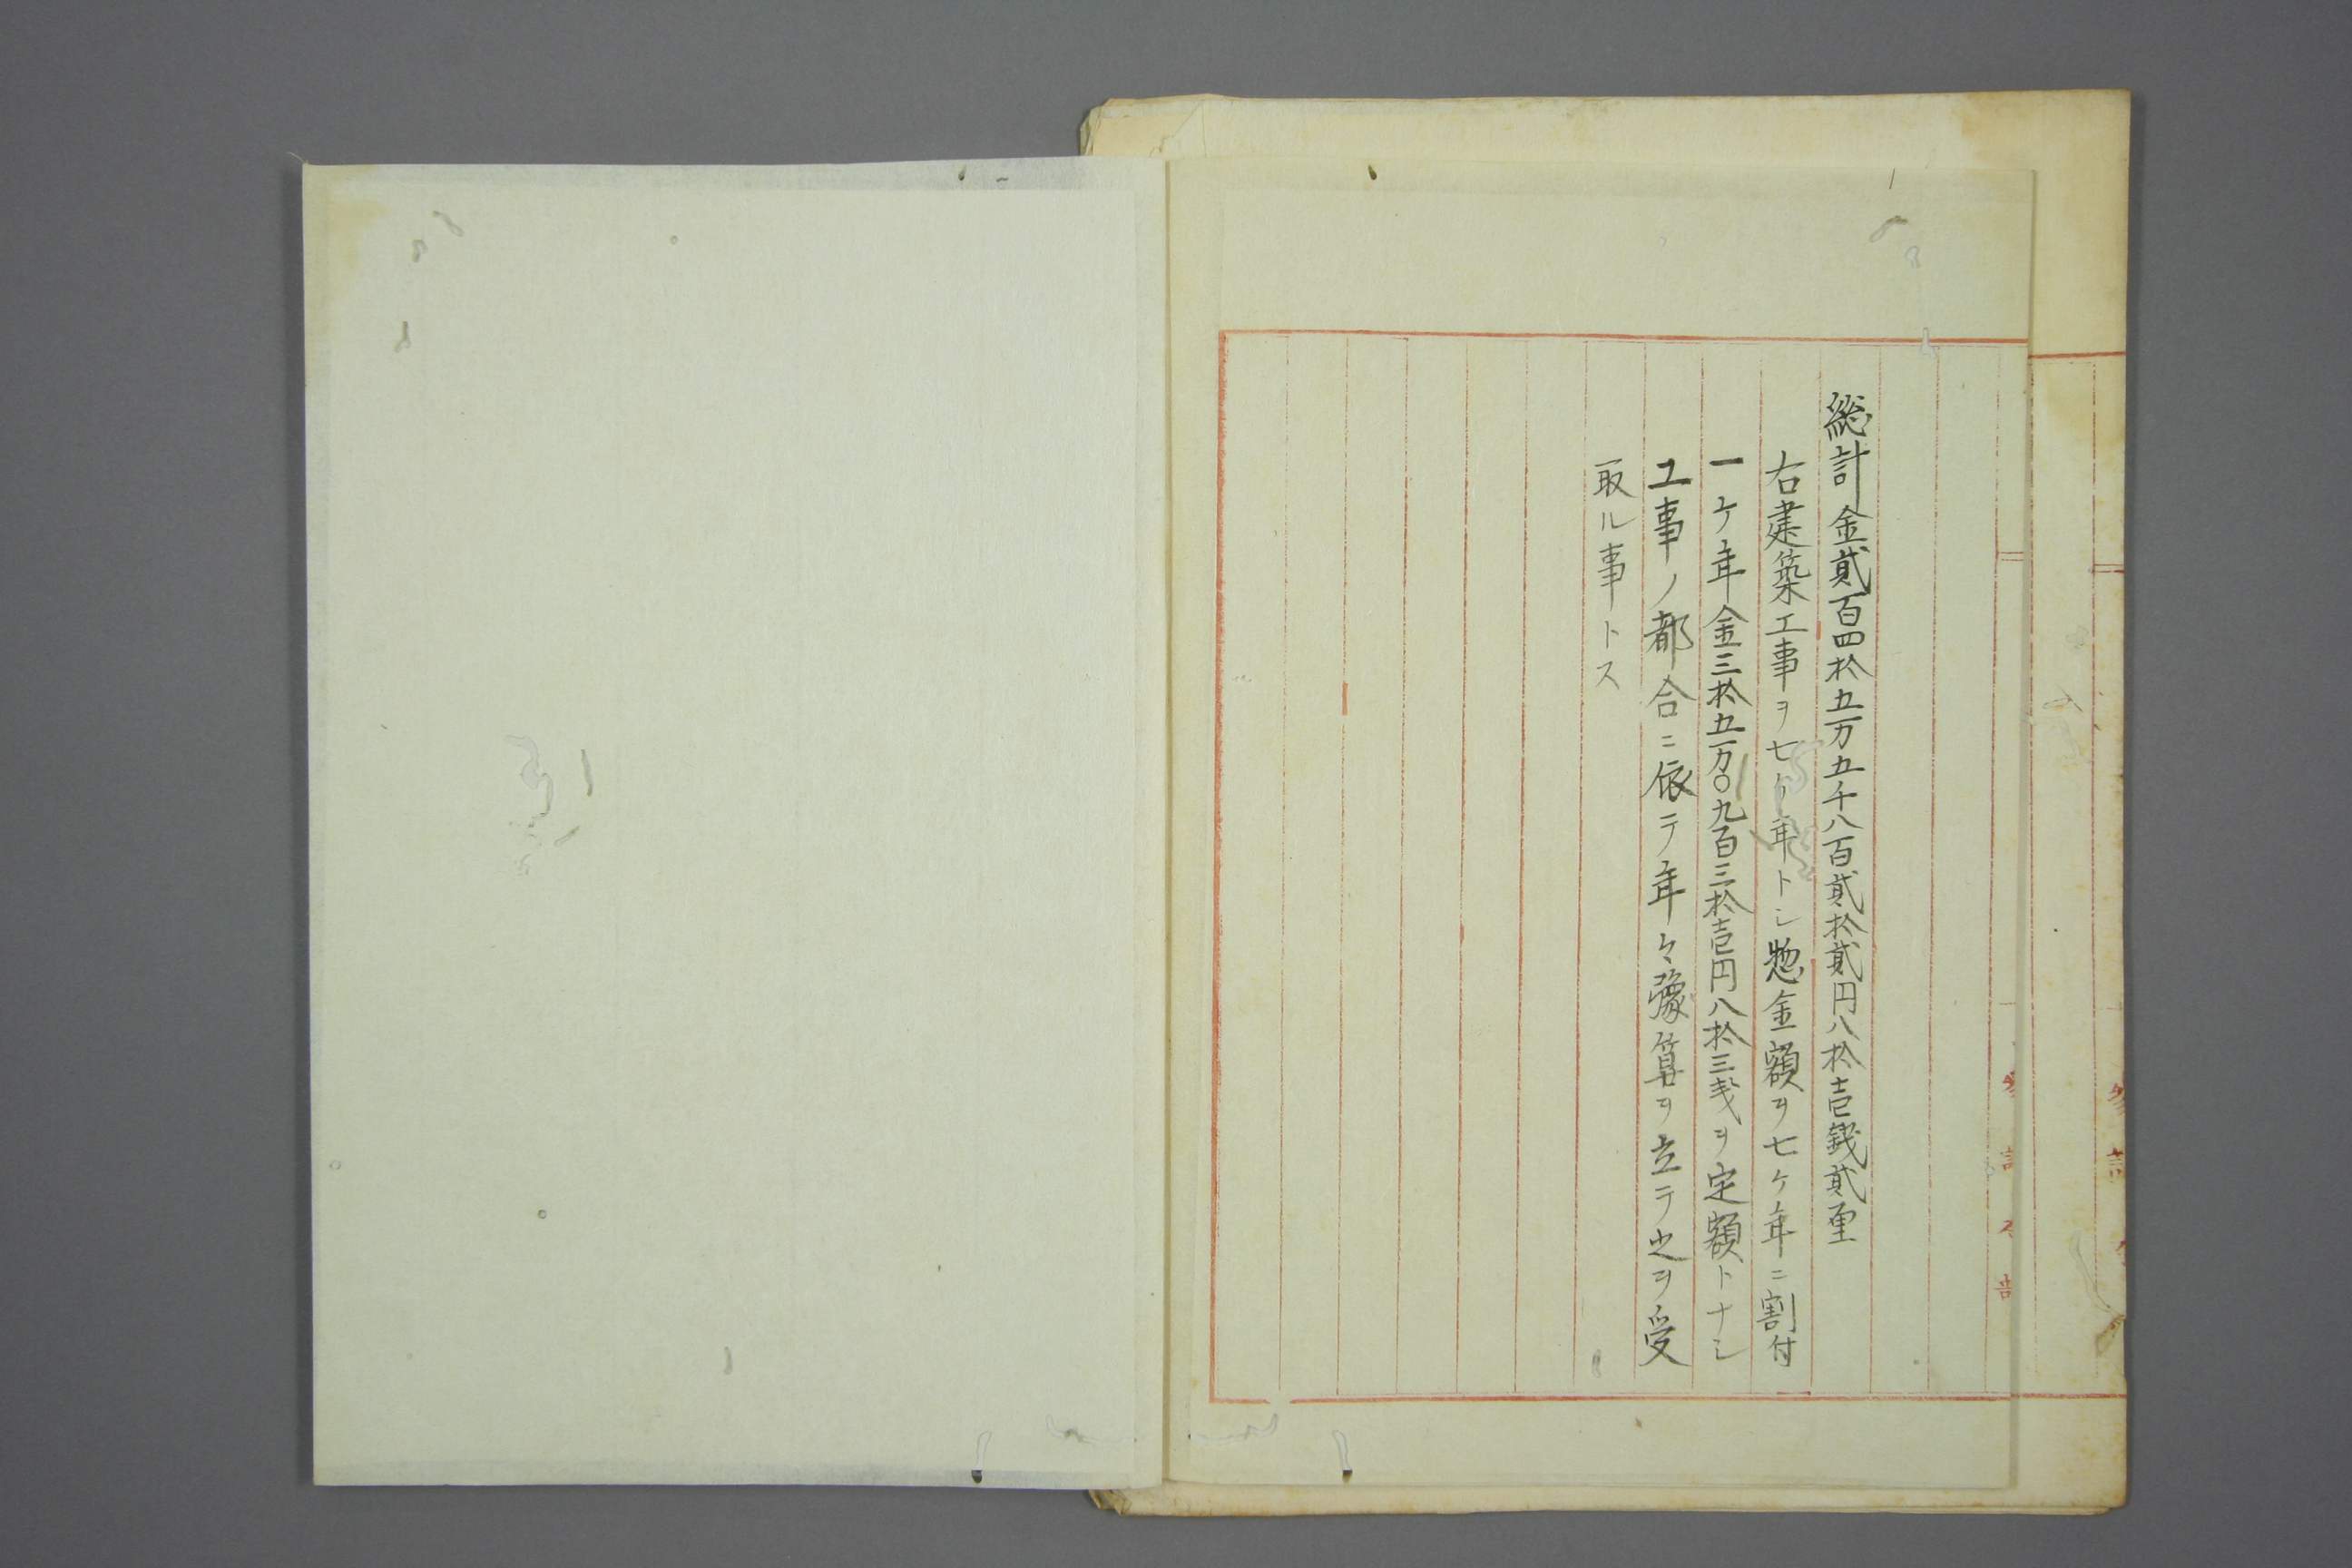 総計金貮百四拾五万五千八百貮拾貮円八拾壱銭貮厘
右建築工事ヲ七ケ年トシ惣金額ヲ七ケ年ニ割付
一ケ年金三拾五万〇九百三拾壱円八拾三戋ヲ定額トナシ
工事ノ都合ニ依テ年々豫算ヲ立テ之ヲ受
取ル事トス